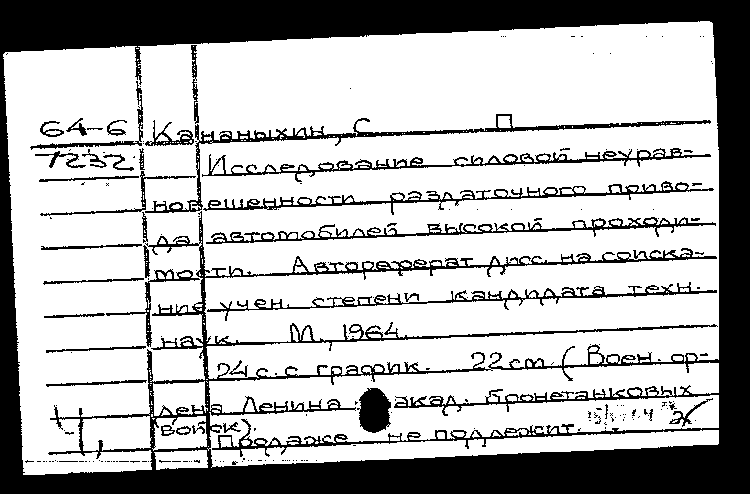 64-6 Кананыхин, С П
7232 Исследование силовой неурав-
новешенности раздаточного приво-
да автомобилей высокой проходи-
мости. Автореферат дисс. на соиска-
ние учен. степени кандидата техн.
наук. М., 1964.
24 с. с график. 22 см. (Воен. ор-
дена Ленина акад. бронетанковых
войск).
Продаже не подлежит.